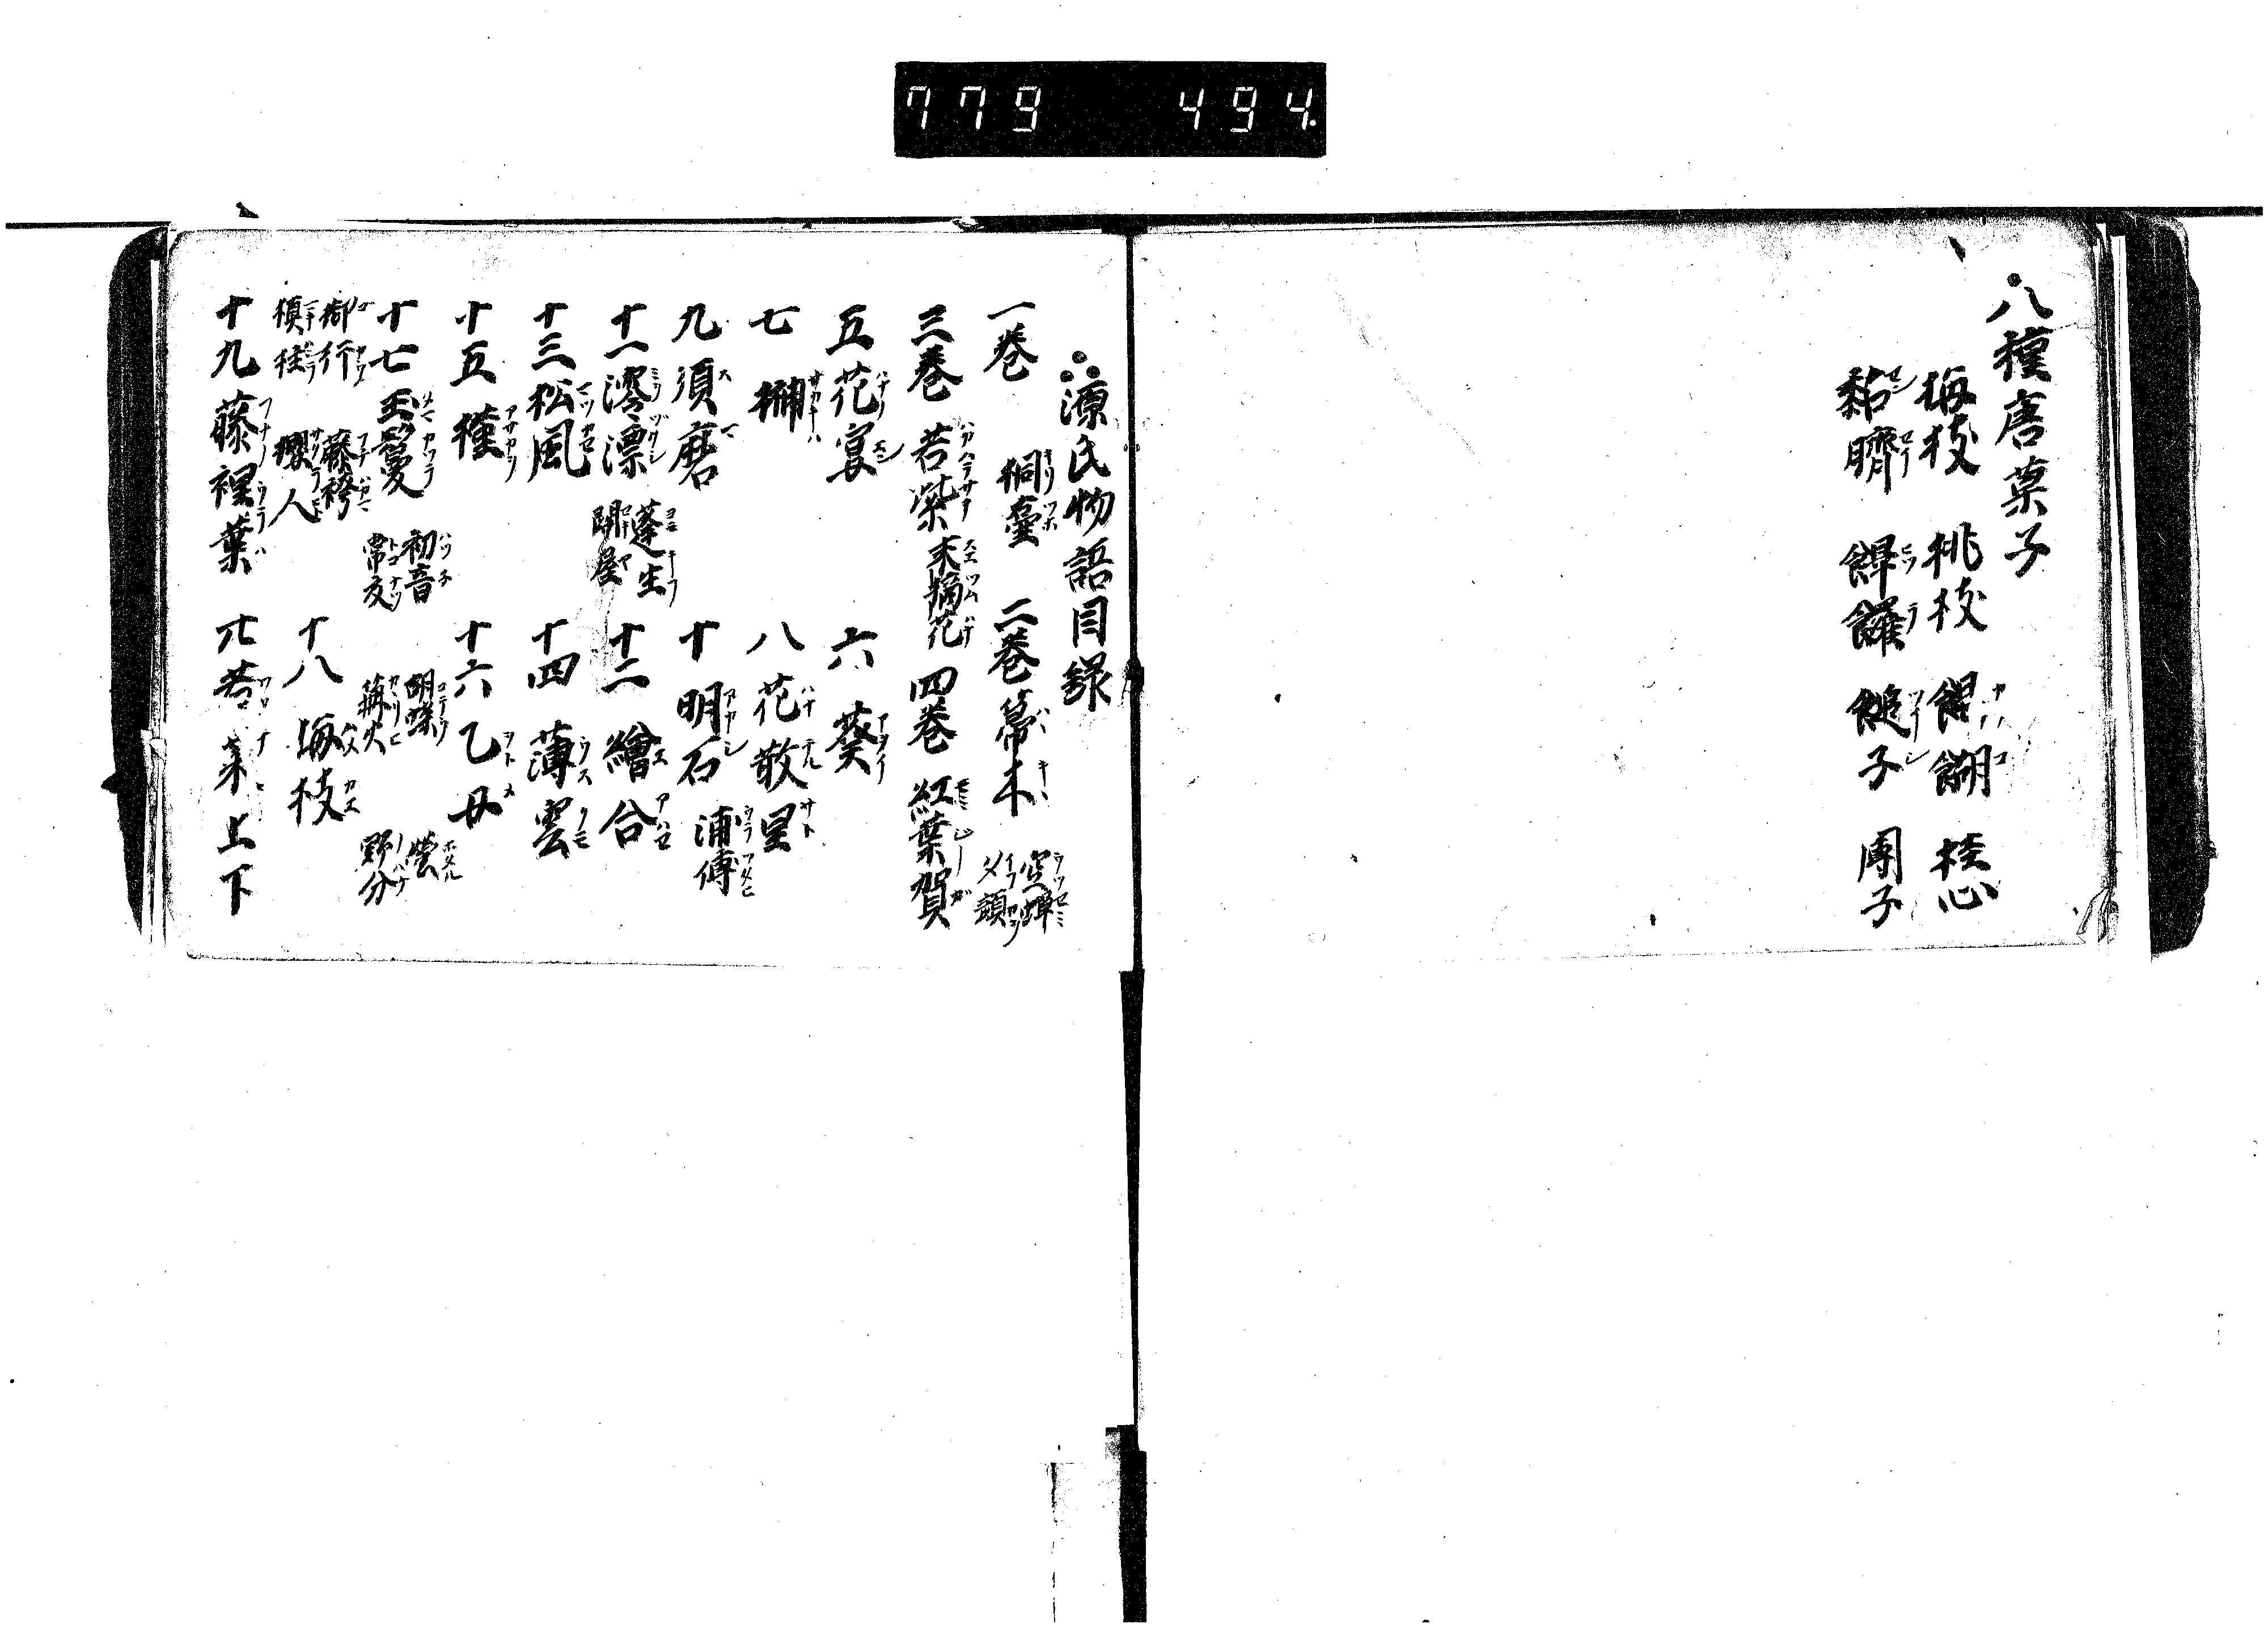 779 494
八種唐菓子
梅枝 桃枝 餲餬 桂心
黏臍 饆饠 䭔子 團子
源氏物語目録
一巻 桐壷 二巻 箒木 空蝉 夕顔
三巻 若紫 末摘花 四巻 紅葉賀
五 花宴 六 葵
七 榊 八 花散里
九 須磨 十 明石 浦傳
十一 澪漂 蓬生 関屋 十二 繪合
十三 松風 十四 薄雲
十五 槿 十六 乙女
十七 玉鬘 初音 胡蝶 螢 常夏 篝火 野分
御行 藤袴 槙柱 櫻人 十八 梅枝
十九 藤裡葉 廿 若菜上下